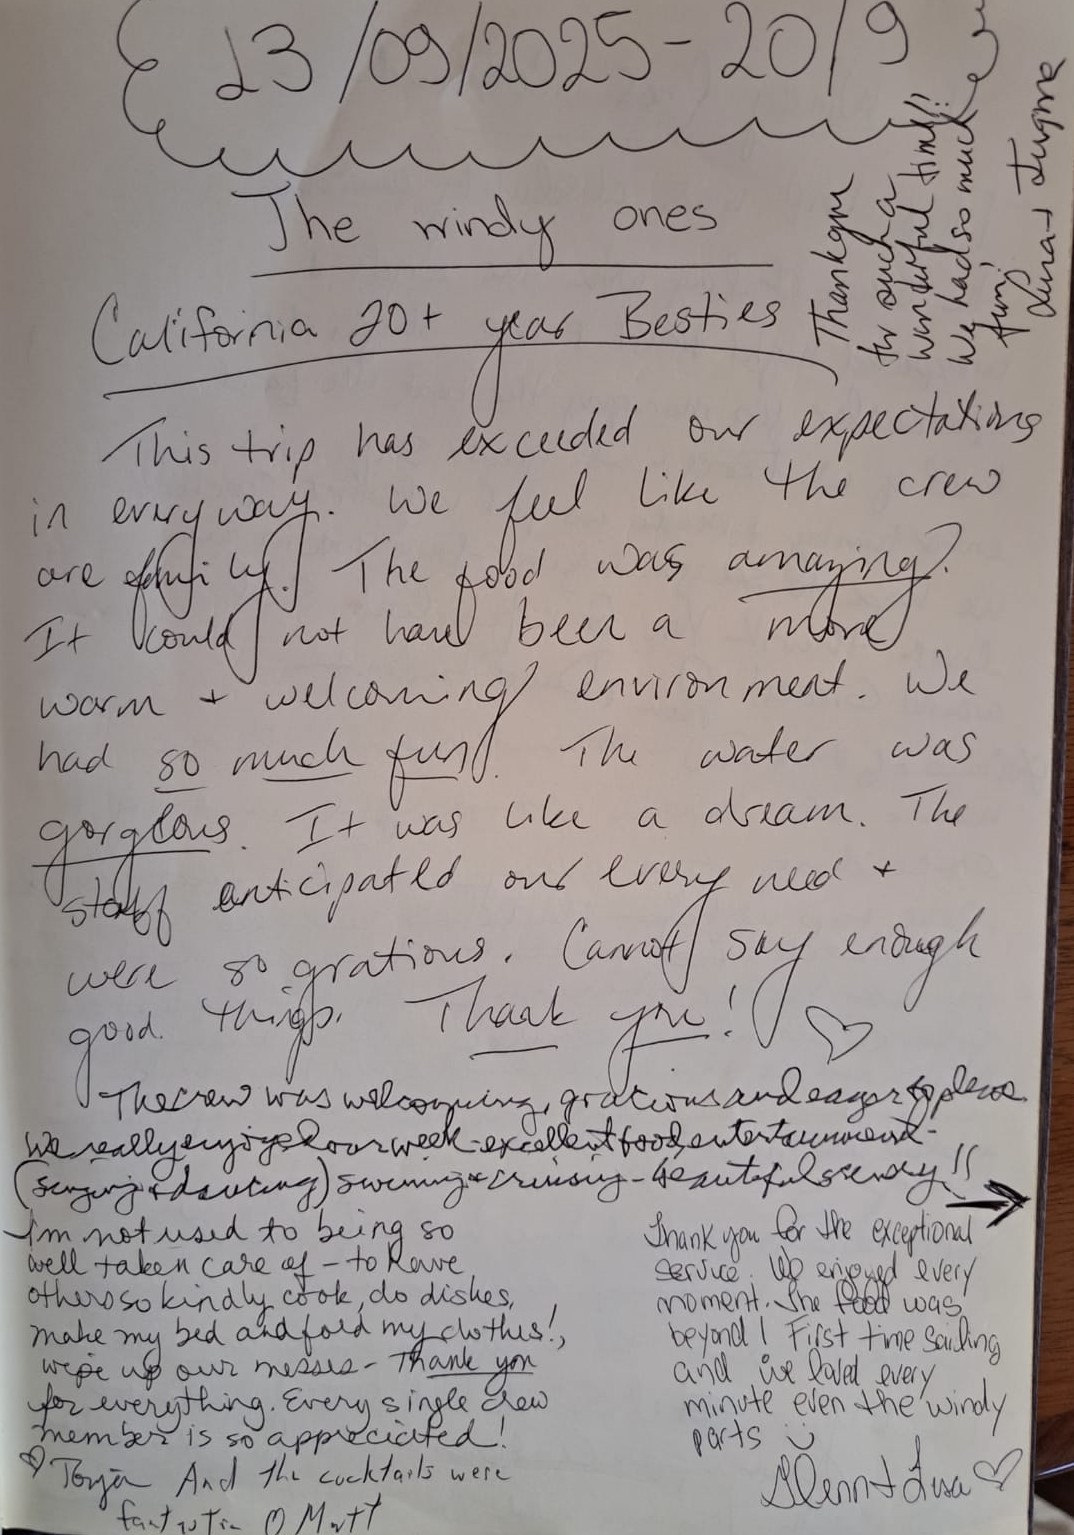 13/09/2025 - 20/9
The windy ones
California 20+ year Besties
Thank you
for such a
wonderful time!!
We had so much
fun!
This trip has exceeded our expectations
in every way. We feel like the crew
are family. The food was amazing!
It could not have been a more
warm + welcoming environment. We
had so much fun. The water was
gorgeous. It was like a dream. The
staff anticipated our every need +
were so gratious. Cannot say enough
good things. Thank you! ♡
The crew was welcoming, gracious and eager to please
We really enjoyed our week - excellent food, entertainment -
(singing + dancing) swiming + cruising - beautiful scenery!!
→
I'm not used to being so
well taken care of - to have
others so kindly cook, do dishes,
make my bed and fold my clothes!,
wipe up our messes - Thank you
for everything. Every single crew
member is so appreciated!
♡ Tonja And the cocktails were
fantastic Matt
Thank you for the exceptional
service. We enjoyed every
moment. The food was
beyond! First time sailing
and we loved every
minute even the windy
parts :)
Glenn + Lisa ♡